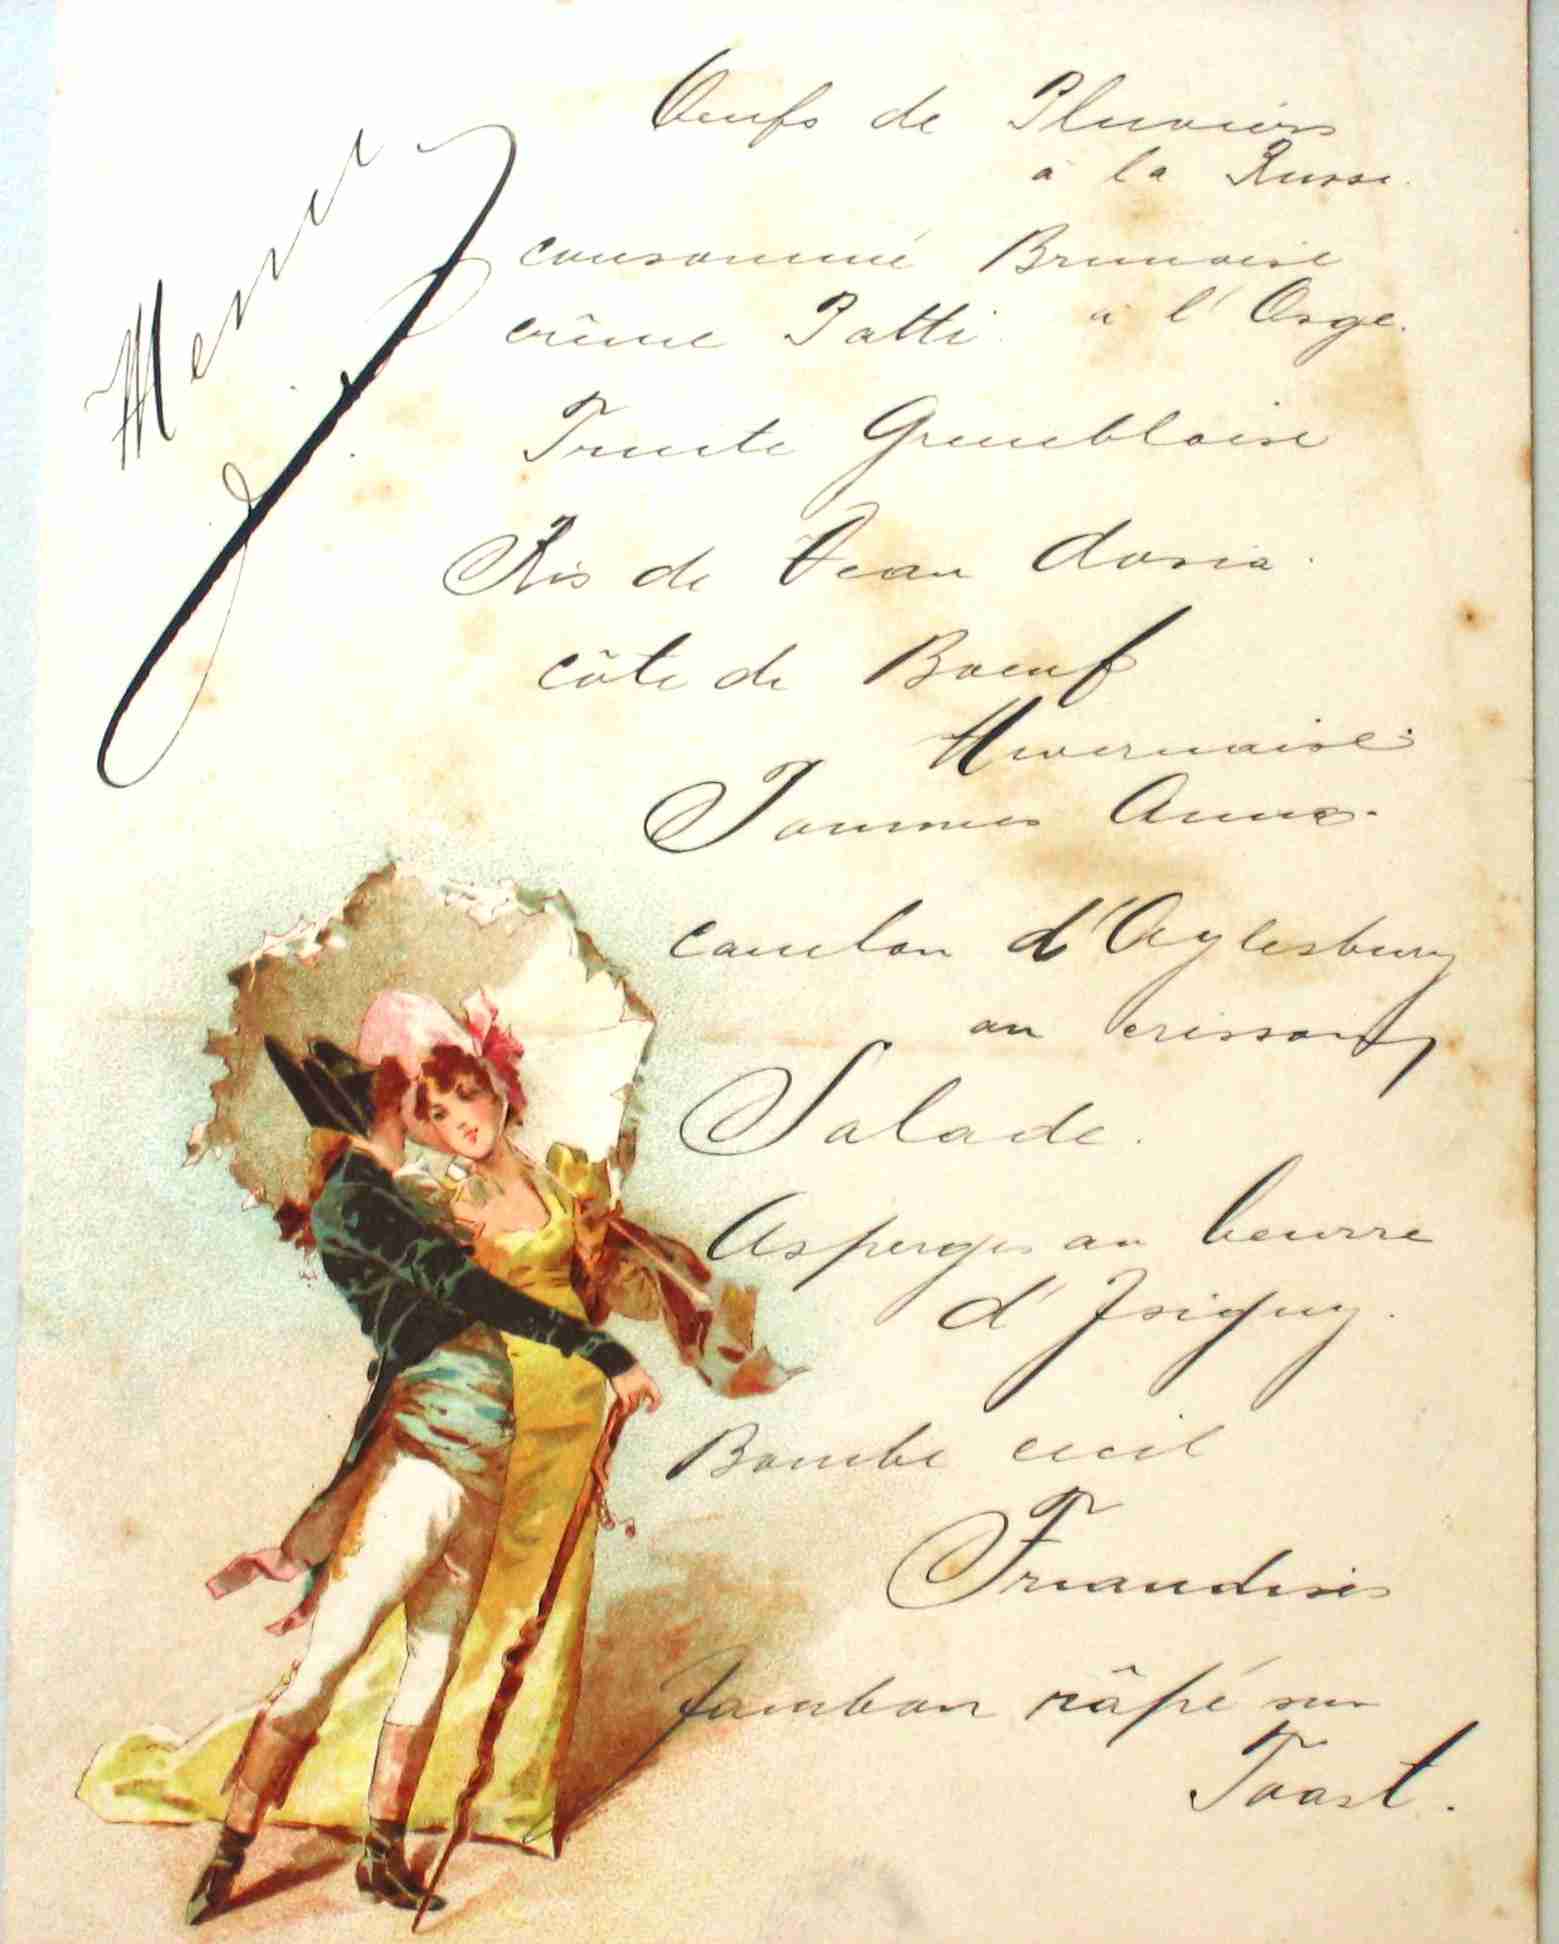 Menu
Oeufs de Pluviers
à la Russe.
consommé Brunoise
à l'Orge.
crême Patti.
Truite Grenobloise
Ris de Veau doria.
côte de Boeuf
Nivernaise.
Pommes Anna.
caneton d'Aylesbury
au cresson
Salade.
Asperges au beurre
d'Isigny.
Bombe cecil
Friandises
Jambon râpé sur
Toast.